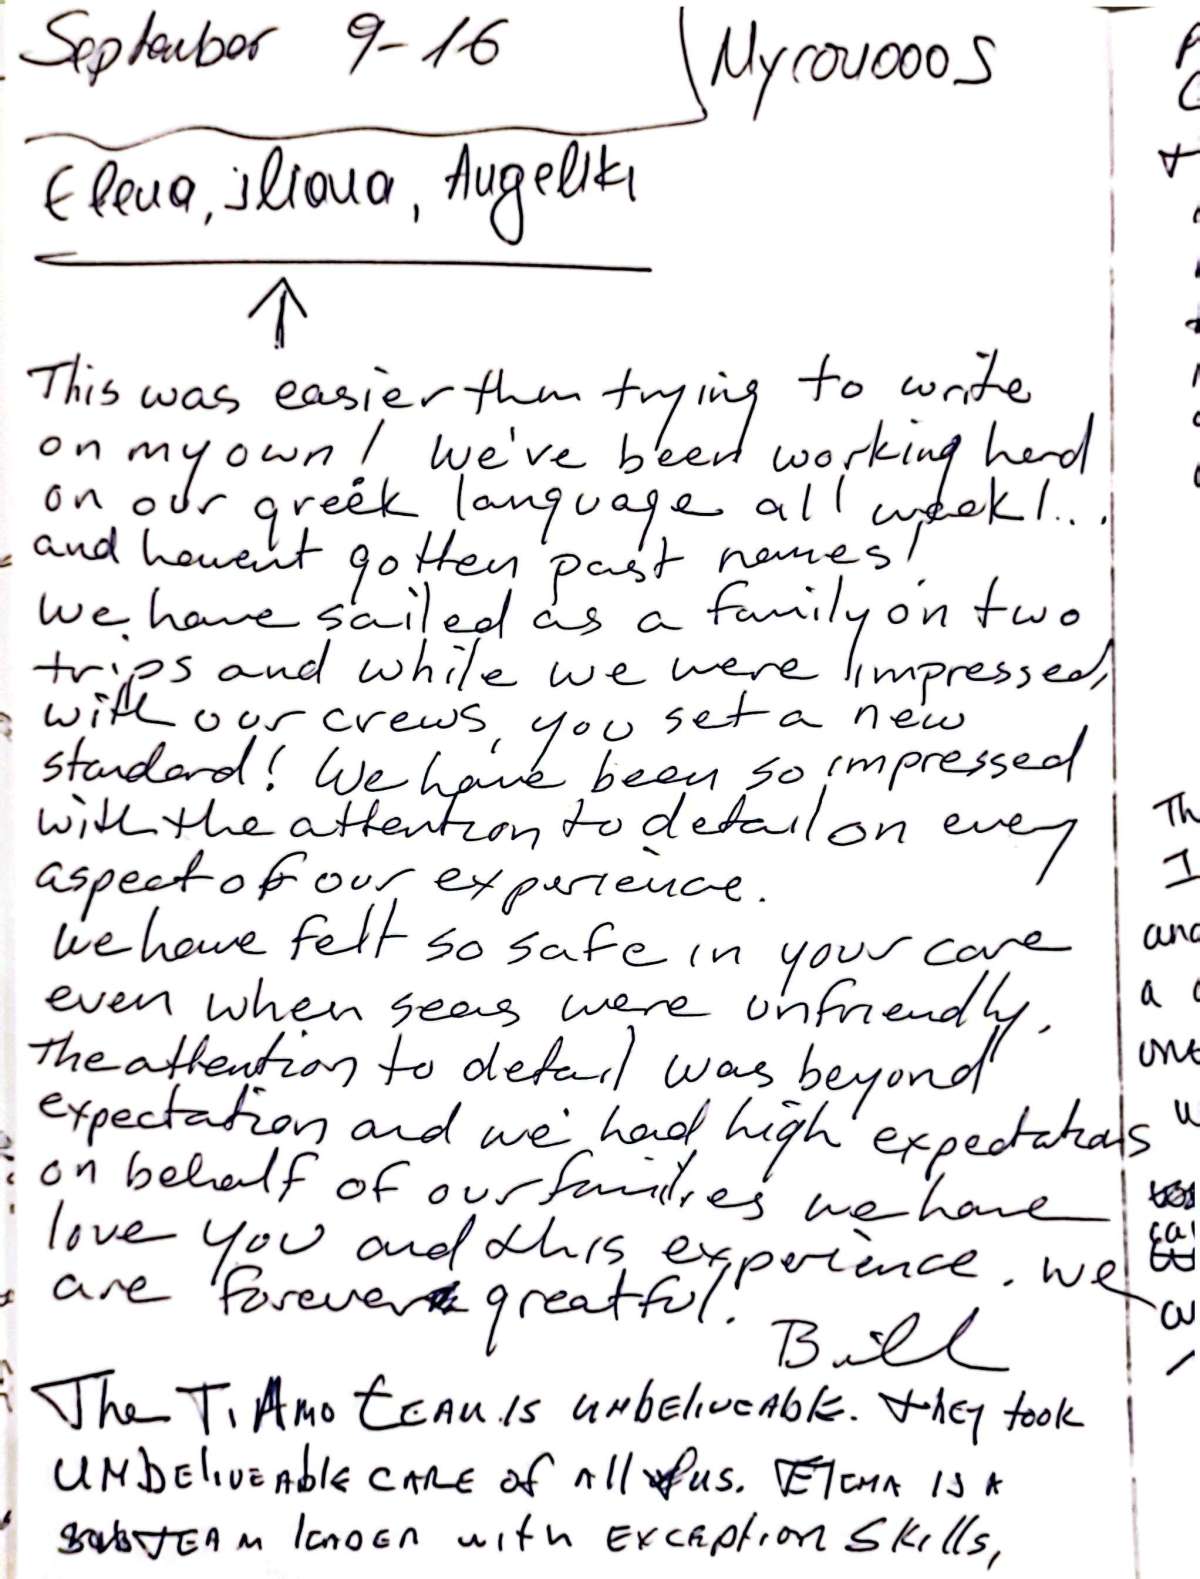 September 9-16
Elena, iliana, Angeliki
This was easier then trying to write
on my own! We've been working hard
on our greek language all week!...
and havent gotten past names!
We have sailed as a family on two
trips and while we were impressed
with our crews, you set a new
standard! We have been so impressed
with the attention to detail on every
aspect of our experience.
We have felt so safe in your care
even when seas were unfriendly.
The attention to detail was beyond
expectation and we had high expectations
on behalf of our families we have
love you and this experience. We
are forever greatful.
Bill
The Ti Amo team is unbeliveable. They took
unbeliveable care of all of us. Elena is a
team leader with exception skills,